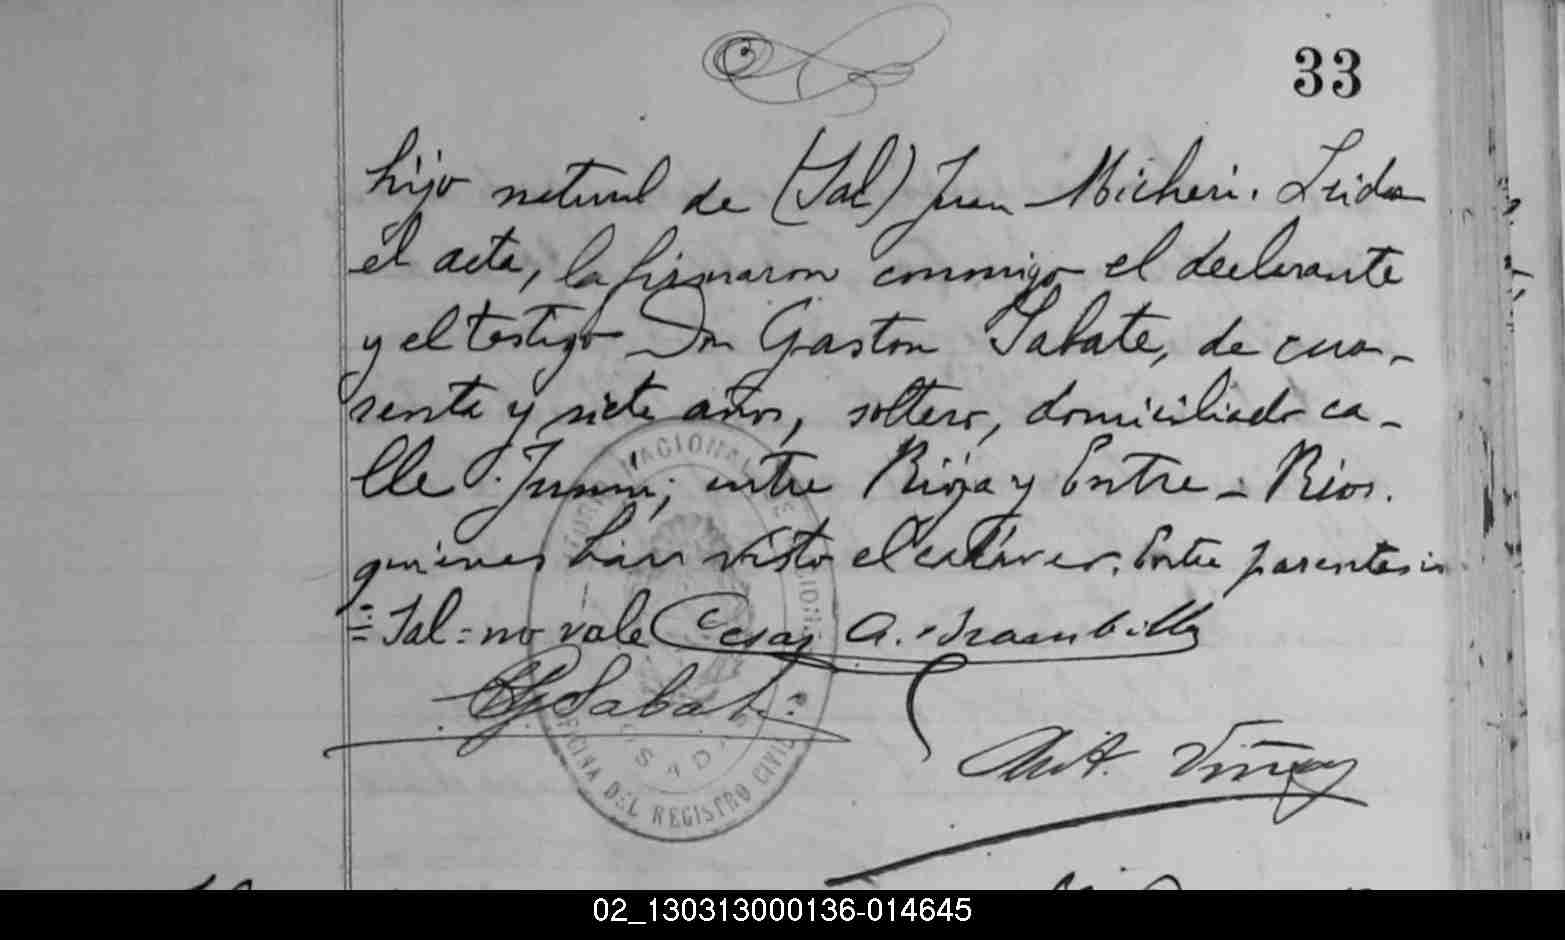 33
hijo natural de (Tal) Juan Micheri. Leida
el acta, la firmaron conmigo el declarante
y el testigo Don Gaston Sabate, de cua-
renta y siete años, soltero, domiciliado ca-
lle Junin, entre Rioja y Entre-Rios.
quienes han visto el cadáver. Entre parentesis
= Tal = no vale Cesar A.
G Sabate
Ant. Viñas
NACIONAL DE
POSADAS
OFICINA DEL REGISTRO CIVIL
02_130313000136-014645